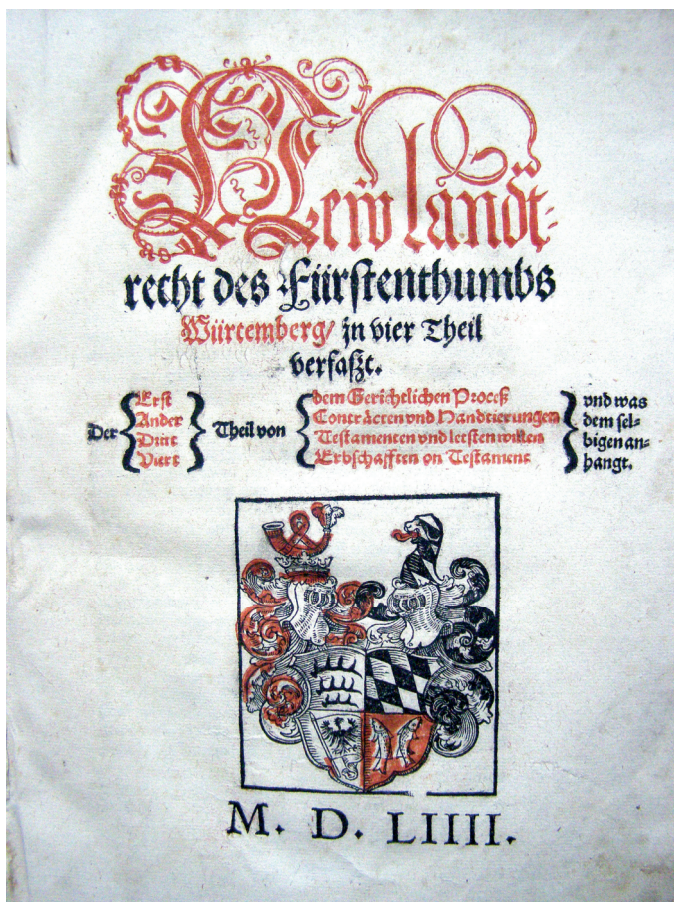 New landt-
recht des Fürstenthumbs
Würtemberg/ jn vier Theil
verfaßt.
Der { Erst Ander Dritt Viert } Theil von { dem Gerichtlichen Proceß Conträcten vnd Handtierungen Testamenten vnd letsten willen Erbschafften on Testament } vnd was dem sel-bigen an-hangt.
M. D. LIIII.